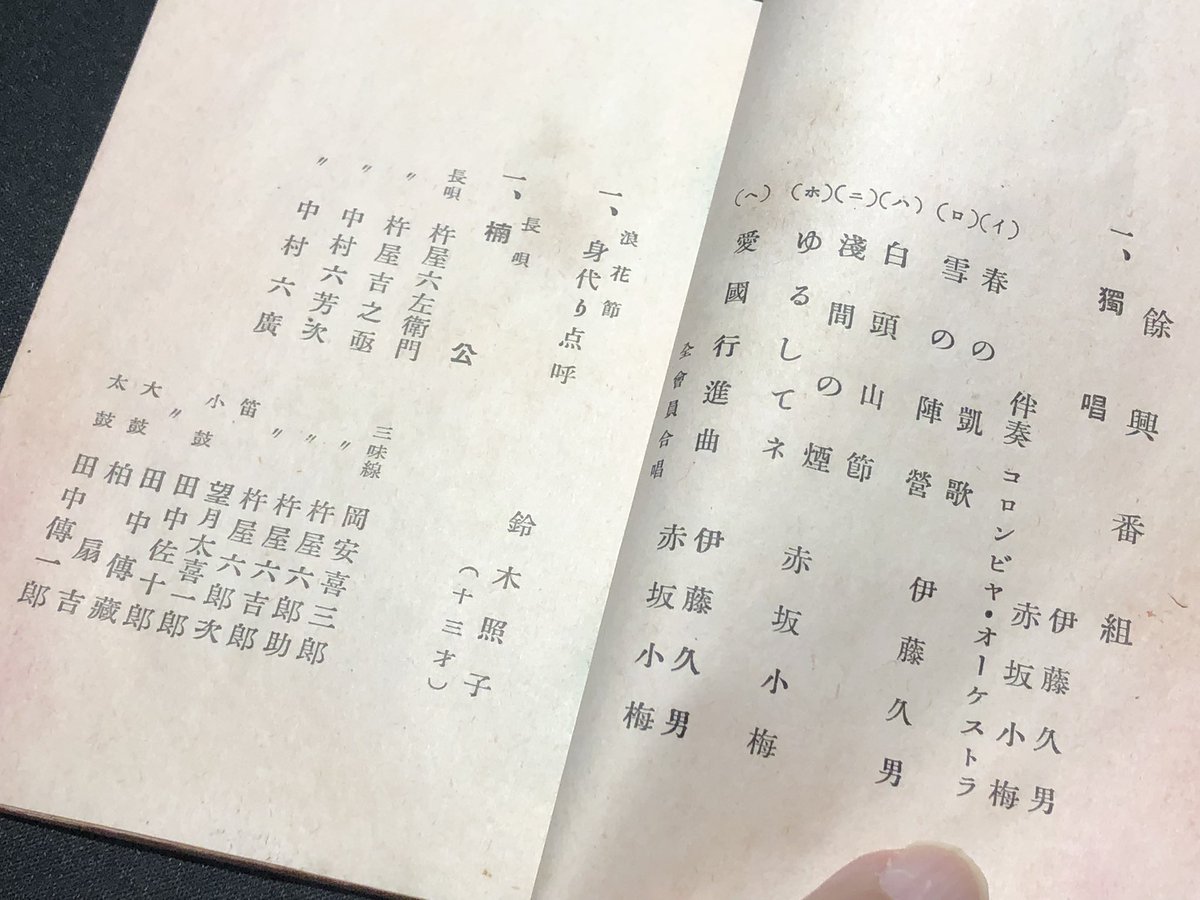 餘興番組
一、獨唱 伊藤久男
赤坂小梅
伴奏 コロンビヤ・オーケストラ
(イ) 春の凱歌
(ロ) 雪の陣營 伊藤久男
(ハ) 白頭山節
(ニ) 淺間の煙 赤坂小梅
(ホ) ゆるしてネ
(ヘ) 愛國行進曲 伊藤久男
全會員合唱 赤坂小梅
浪花節
一、身代り点呼 鈴木照子
(十三才)
長唄
一、楠公
長唄 杵屋六左衛門
〃 杵屋吉之亟
〃 中村六芳次
〃 中村六廣
三味線 岡安喜三郎
〃 杵屋六助
〃 杵屋六吉郎
〃 杵屋六一次
笛 望月太喜郎
小鼓 田中佐十郎
〃 田中傳藏
大鼓 柏扇吉
太鼓 田中傳一郎